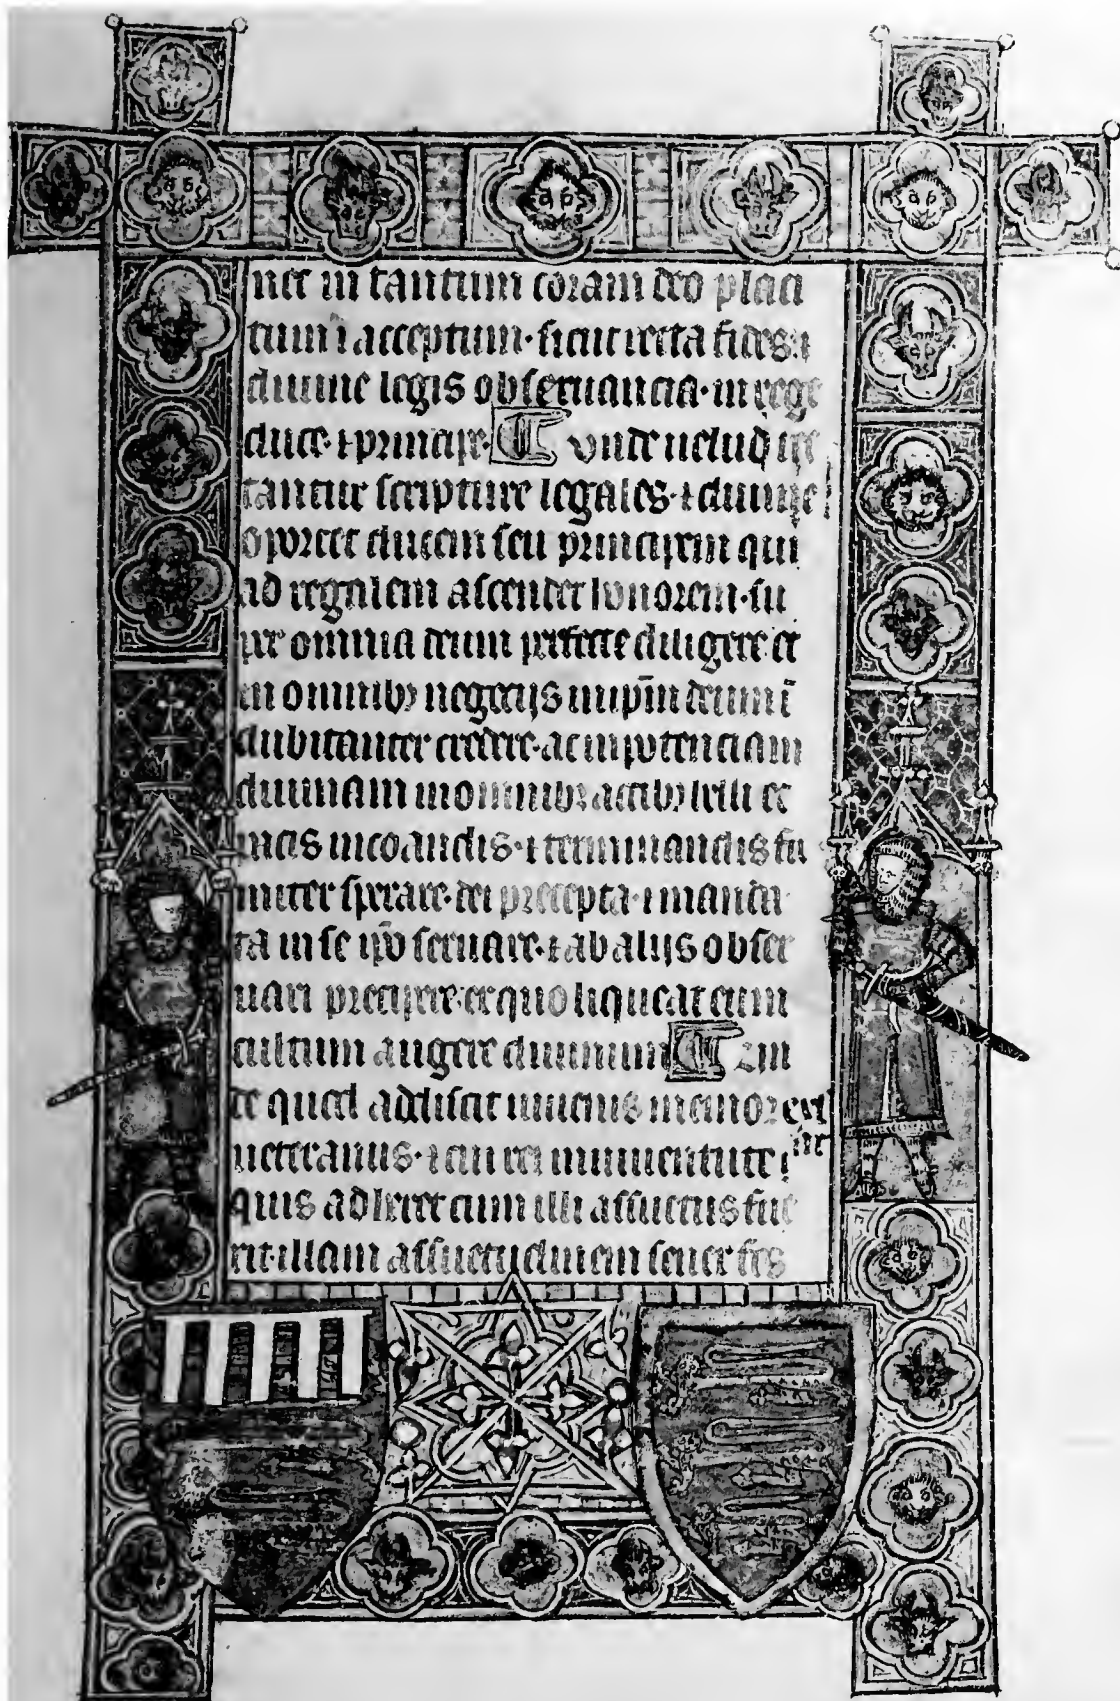 net in tantum coram deo placi
tum ⁊ acceptum· sicut recta fides ⁊
diuine legis obseruancia· in rege
duce· ⁊ principe· Unde uelud
tantur scripture legales· ⁊ diuine
oportet ducem seu principem qui
ad regalem ascendet honorem· su
per omnia deum perfecte diligere et
in omnibꝫ negocijs in ip̄m deum ī
dubitanter credere· ac in potenciam
diuinam in omnibꝫ actibꝫ belli et
pacis incoandis· ⁊ terminandis fir
miter sperare· dei precepta· ⁊ manda
ta in se ip̄o seruare· ⁊ ab alijs obser
uari precipere· ex quo liqueat eum
cultum augere diuinum
te quod addiscit iuuenis memor erit
ueteranus· ⁊ cui rei in iuuentute
quis adheret cum illi assuetus fue
rit· illam assuetudinem